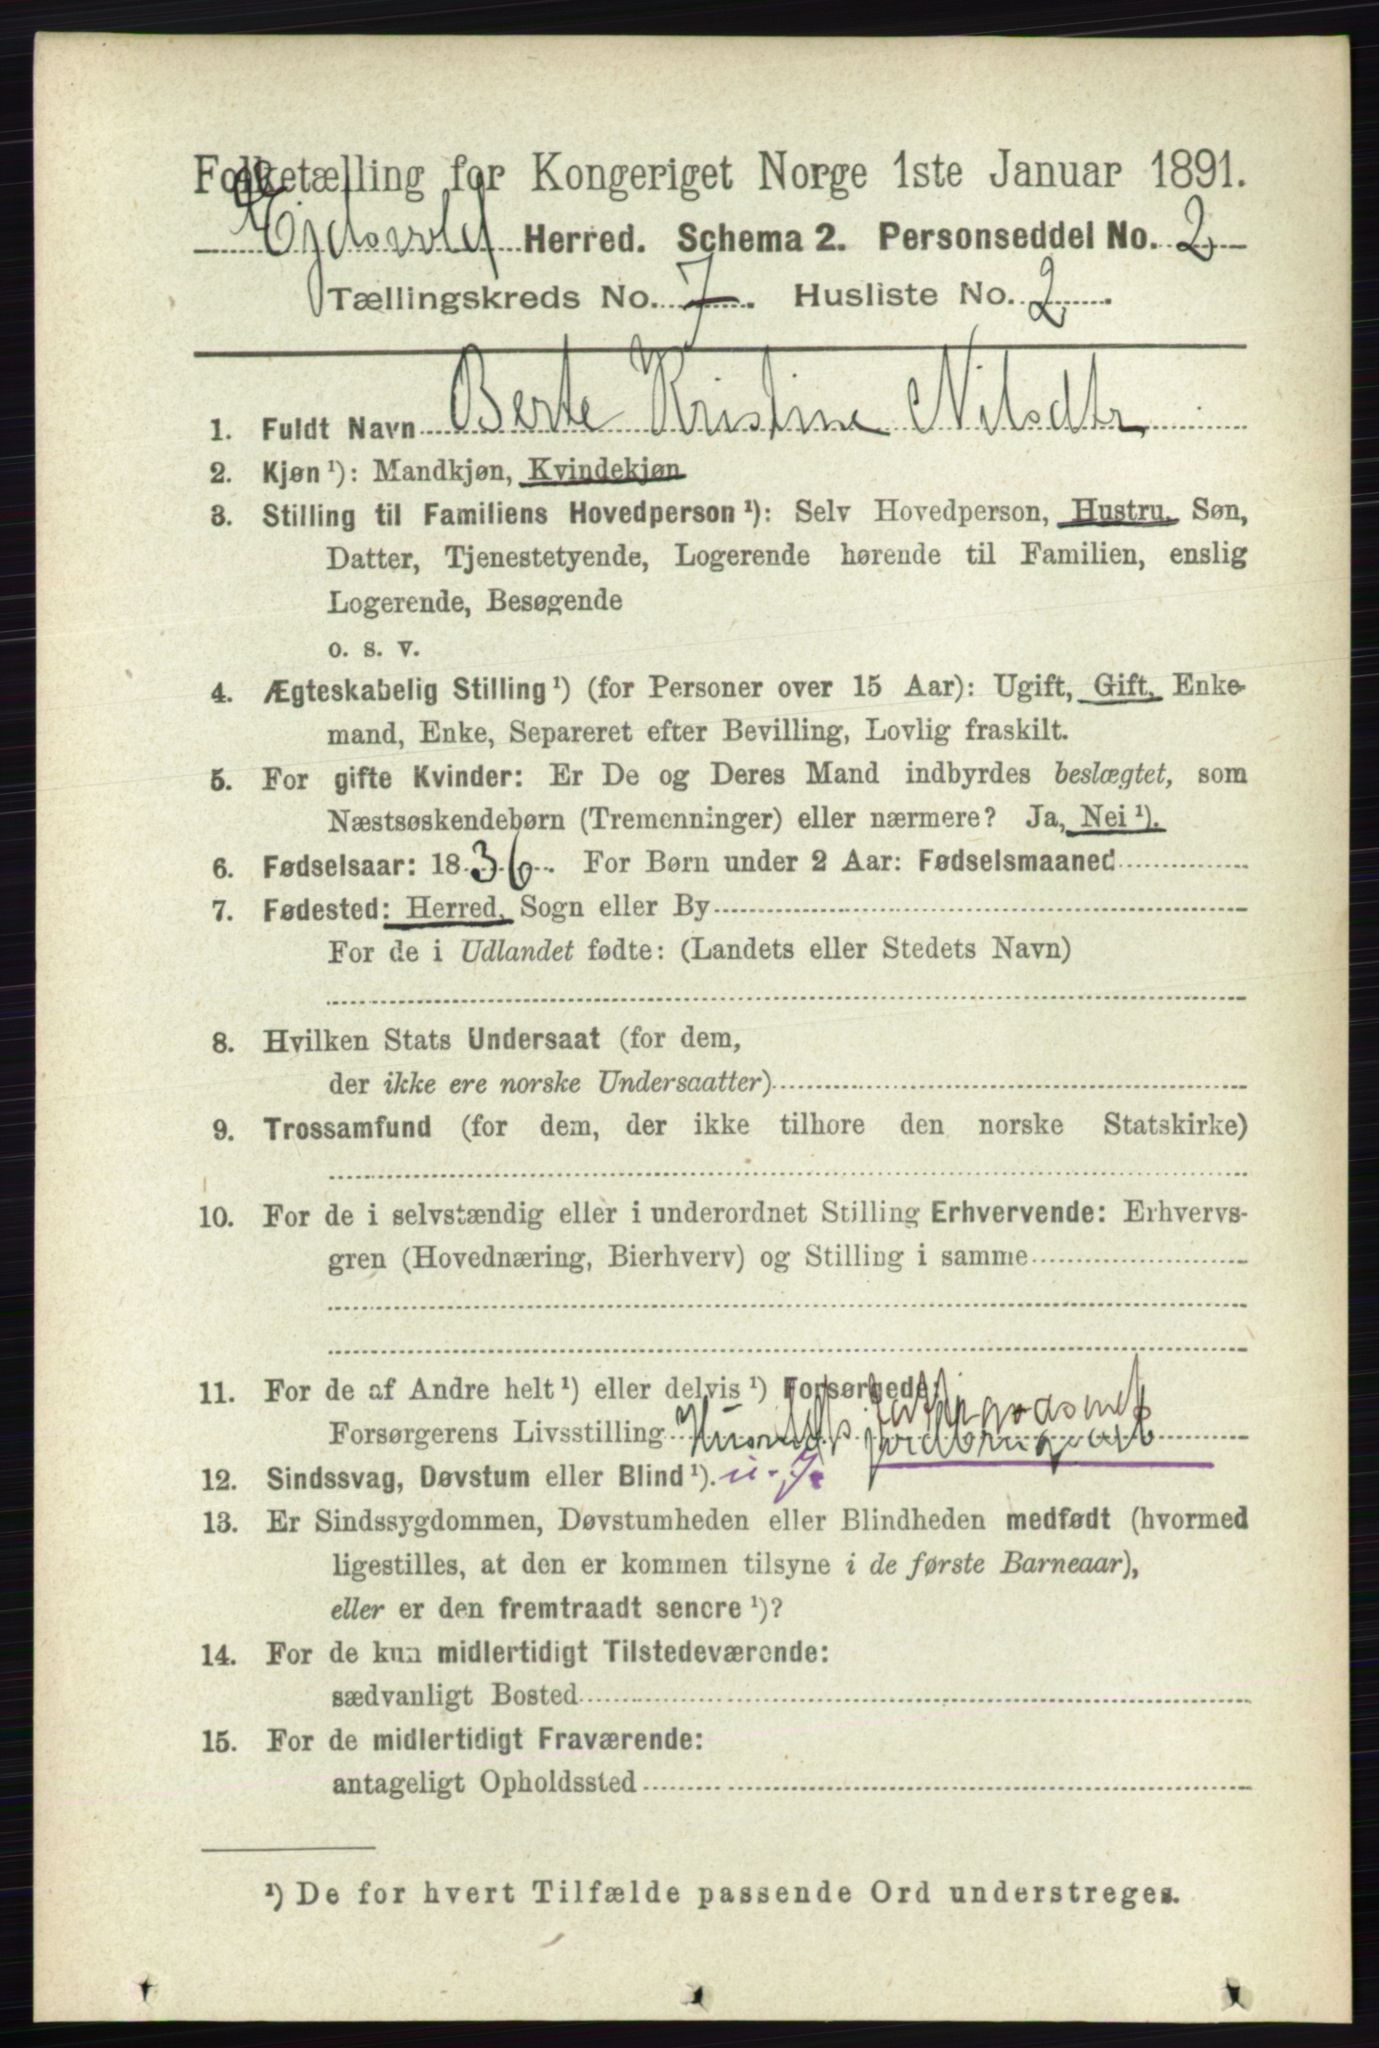 Folketælling for Kongeriget Norge 1ste Januar 1891.
Ejdsvold Herred. Schema 2. Personseddel No. 2
Tællingskreds No. 7. Husliste No. 2
1. Fuldt Navn Berte Kristine Nilsdtr
2. Kjøn ¹): Mandkjøn, Kvindekjøn
3. Stilling til Familiens Hovedperson ¹): Selv Hovedperson, Hustru, Søn,
Datter, Tjenestetyende, Logerende hørende til Familien, enslig
Logerende, Besøgende
o. s. v.
4. Ægteskabelig Stilling ¹) (for Personer over 15 Aar): Ugift, Gift, Enke-
mand, Enke, Separeret efter Bevilling, Lovlig fraskilt.
5. For gifte Kvinder: Er De og Deres Mand indbyrdes beslægtet, som
Næstsøskendebørn (Tremenninger) eller nærmere? Ja, Nei ¹).
6. Fødselsaar: 1836. For Børn under 2 Aar: Fødselsmaaned
7. Fødested: Herred, Sogn eller By
For de i Udlandet fødte: (Landets eller Stedets Navn)
8. Hvilken Stats Undersaat (for dem,
der ikke ere norske Undersaatter)
9. Trossamfund (for dem, der ikke tilhøre den norske Statskirke)
10. For de i selvstændig eller i underordnet Stilling Erhvervende: Erhvervs-
gren (Hovednæring, Bierhverv) og Stilling i samme
11. For de af Andre helt ¹) eller delvis ¹) Forsørgede
Forsørgerens Livsstilling
12. Sindssvag, Døvstum eller Blind ¹).
13. Er Sindssygdommen, Døvstumheden eller Blindheden medfødt (hvormed
ligestilles, at den er kommen tilsyne i de første Barneaar),
eller er den fremtraadt senere ¹)?
14. For de kun midlertidigt Tilstedeværende:
sædvanligt Bosted
15. For de midlertidigt Fraværende:
antageligt Opholdssted
¹) De for hvert Tilfælde passende Ord understreges.